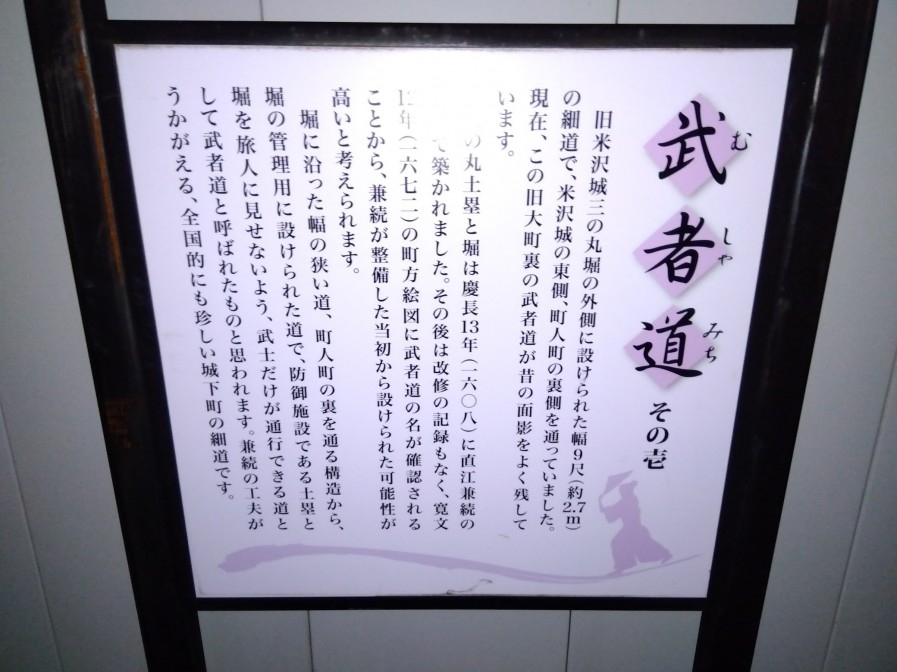 武者道 その壱
むしゃみち
旧米沢城三の丸堀の外側に設けられた幅9尺(約2.7m)
の細道で、米沢城の東側、町人町の裏側を通っていました。
現在、この旧大町裏の武者道が昔の面影をよく残して
います。
の丸土塁と堀は慶長13年(一六〇八)に直江兼続の
で築かれました。その後は改修の記録もなく、寛文
12年(一六七二)の町方絵図に武者道の名が確認される
ことから、兼続が整備した当初から設けられた可能性が
高いと考えられます。
堀に沿った幅の狭い道、町人町の裏を通る構造から、
堀の管理用に設けられた道で、防御施設である土塁と
堀を旅人に見せないよう、武士だけが通行できる道と
して武者道と呼ばれたものと思われます。兼続の工夫が
うかがえる、全国的にも珍しい城下町の細道です。